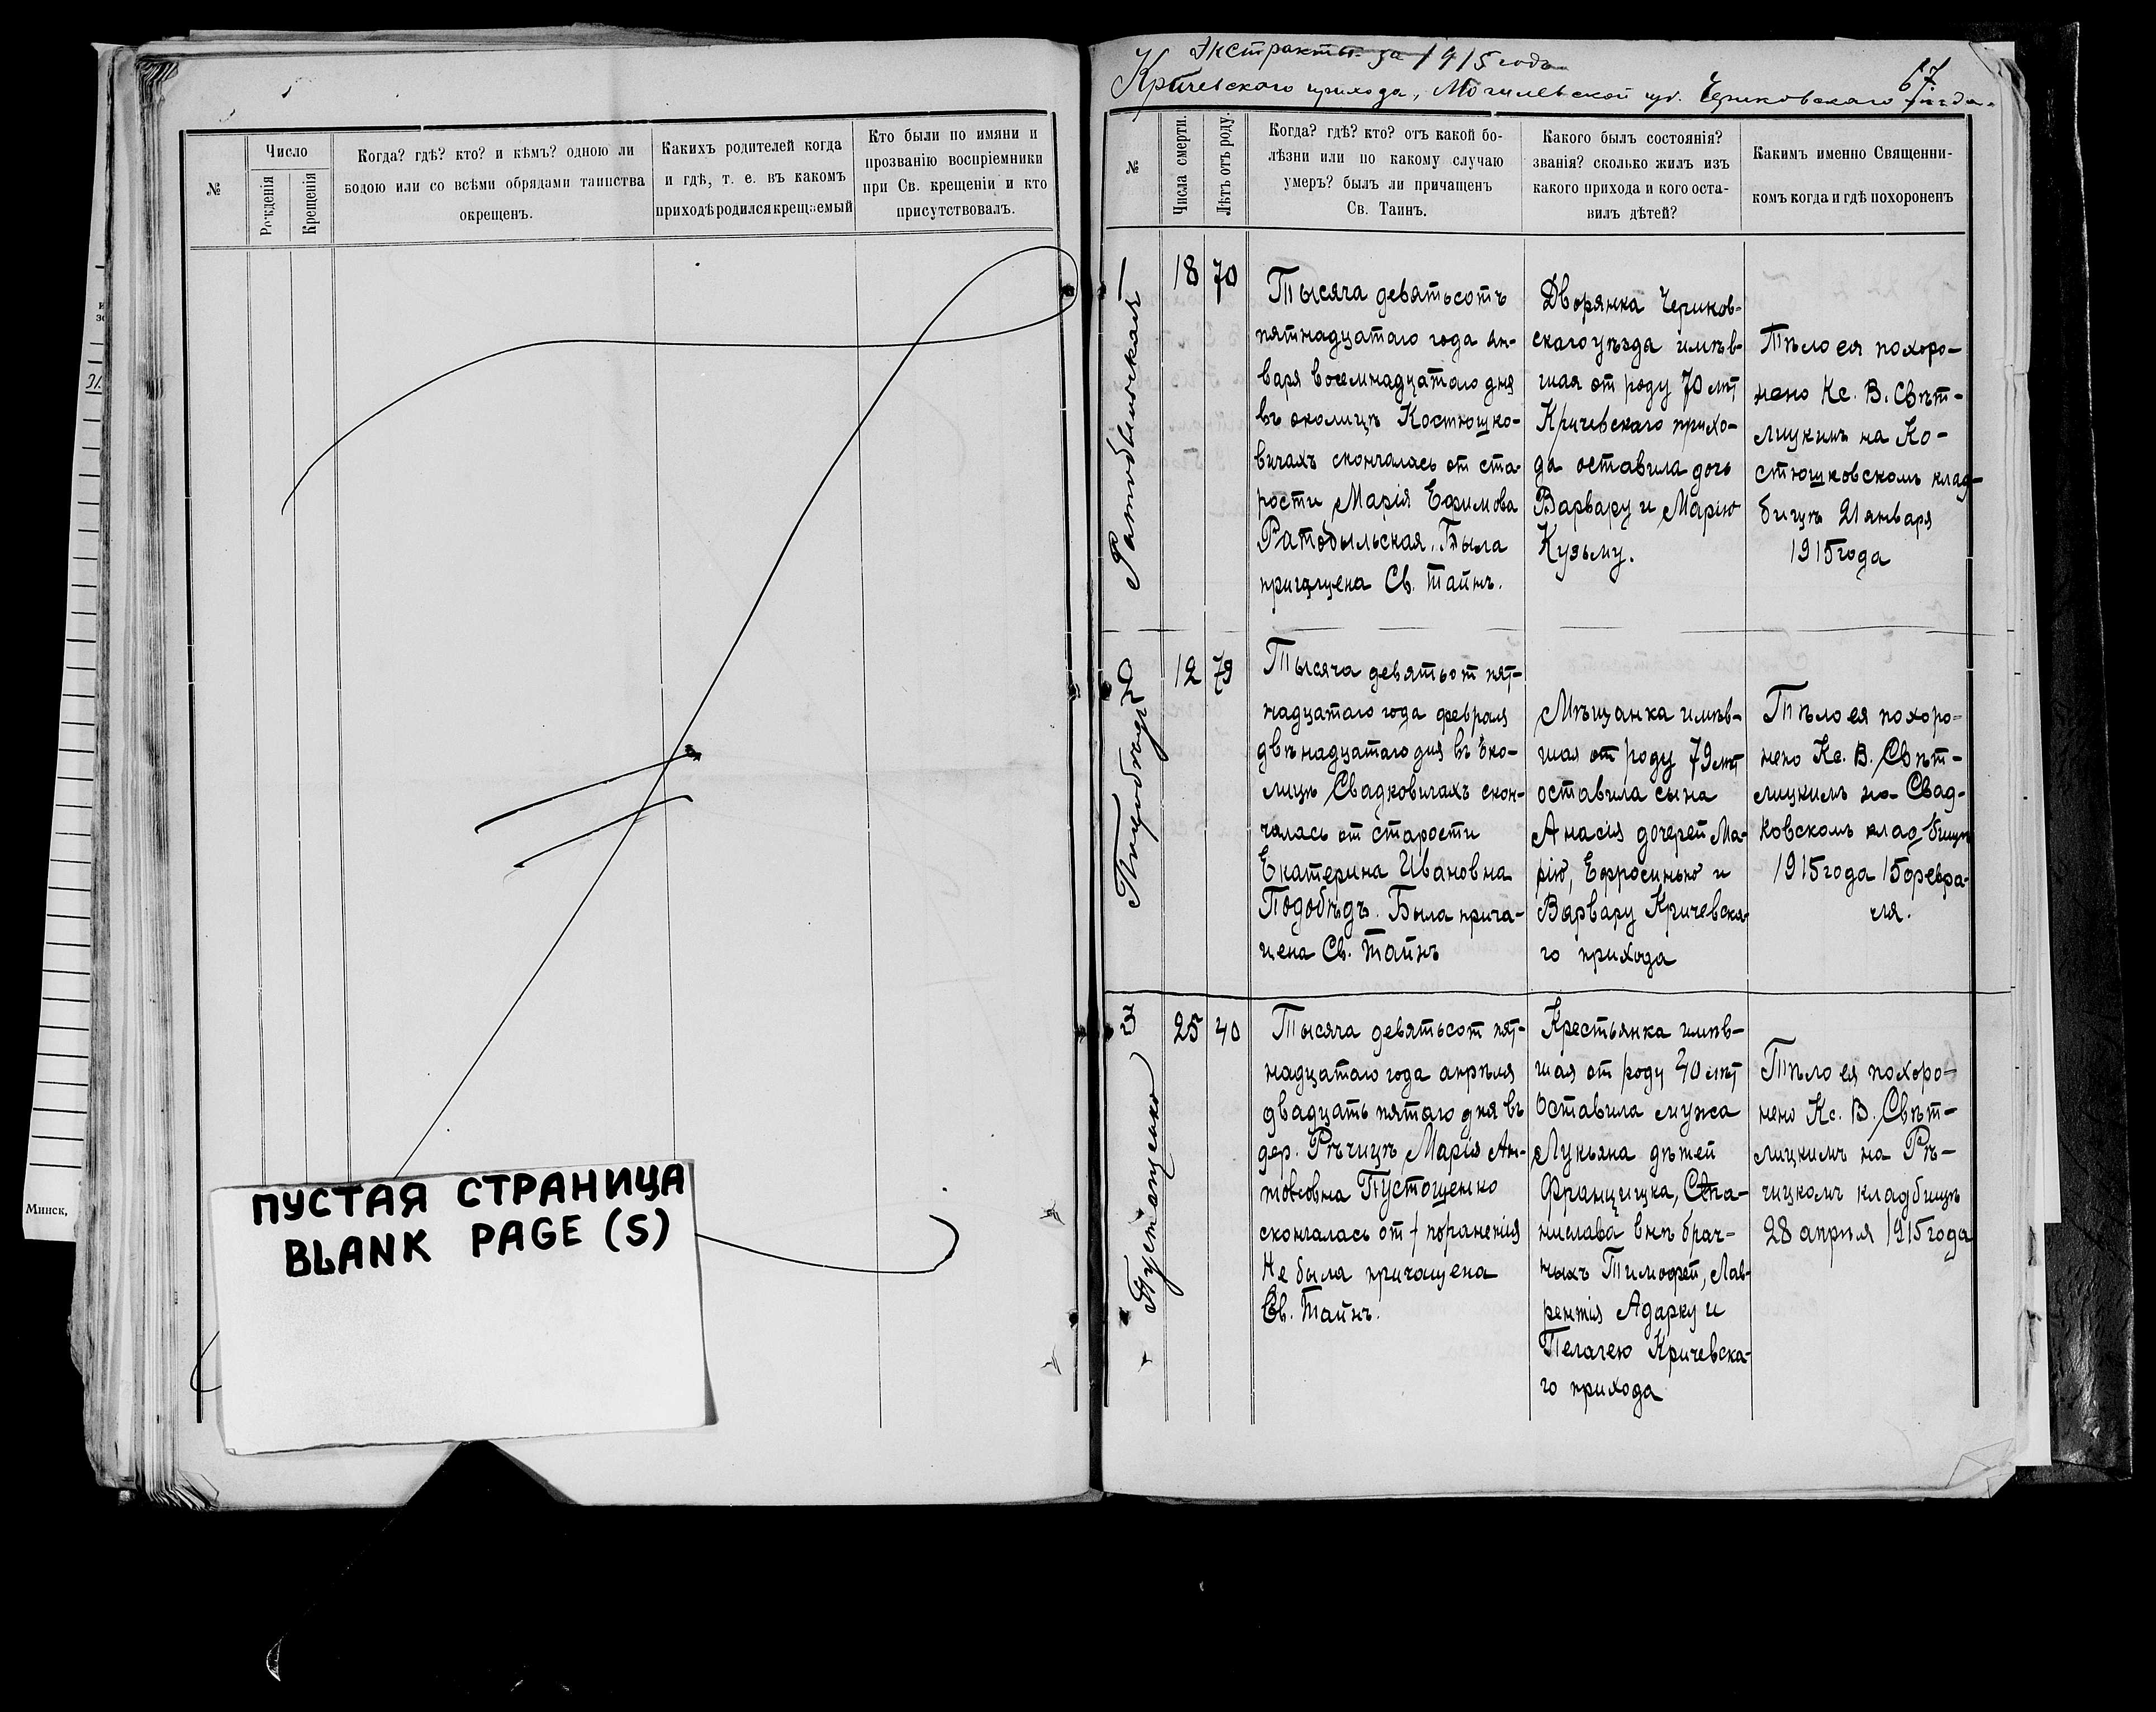 №
Число
Рожденія
Крещенія
Когда? гдѣ? кто? и кѣмъ? одною ли
водою или со всѣми обрядами таинства
окрещенъ.
Какихъ родителей когда
и гдѣ, т. е. въ какомъ
приходѣ родился крещаемый
Кто были по имяни и
прозванію воспріемники
при Св. крещеніи и кто
присутствовалъ.
31.
Минск,
ПУСТАЯ СТРАНИЦА
BLANK PAGE (S)
Экстракты за 1915 годъ
Кричевского прихода, Могилевской губ. Чериковскаго уѣзда.
67
№
Числа смерти.
Лѣтъ отъ роду.
Когда? гдѣ? кто? отъ какой бо-
лѣзни или по какому случаю
умеръ? былъ ли причащенъ
Св. Таинъ.
Какого былъ состоянія?
званія? сколько жилъ изъ
какого прихода и кого оста-
вилъ дѣтей?
Какимъ именно Священни-
комъ когда и гдѣ похороненъ
1
Ратобыльская
18
70
Тысяча деватьсотъ
пятнадцатаго года ян-
варя восемнадцатаго дня
въ околицѣ Костюшко-
вичахъ скончалась от ста-
рости Марія Ефимова
Ратобыльская. Была
причащена Св. Тайнъ.
Дворянка Чериков-
скаго уѣзда имѣв-
шая от роду 70 лѣт
Кричевскаго прихо-
да оставила доч
Варвару и Марію
Кузьму.
Тѣло ея похоро-
нено Кс. В. Свѣт-
лицкимъ на Ко-
стюшковскомъ клад-
бищѣ 21 января
1915 года
2
Подобѣдъ
12
79
Тысяча девятьсот пят-
надцатаго года февраля
двѣнадцатаго дня въ око-
лицѣ Свадковичахъ скон-
чалась от старости
Екатерина Ивановна
Подобѣдъ. Была прича-
щена Св. Тайнъ
Мѣщанка имѣв-
шая от роду 79 лѣт
оставила сына
Анасія дочерей Ма-
рію, Ефросинью и
Варвару Кричевска-
го прихода
Тѣло ея похоро-
нено Кс. В. Свѣт-
лицкимъ на Свад-
ковскомъ кладбищѣ
1915 года 15 февра-
ля.
3
Пустошенко
25
40
Тысяча девятьсот пят-
надцатаго года апрѣля
двадцать пятаго дня въ
дер. Рѣчицѣ Марія Ан-
тоновна Пустошенко
скончалась от пораненія
Не была причащена
Св. Тайнъ.
Крестьянка имѣв-
шая от роду 40 лѣт
Оставила мужа
Лукьяна дѣтей
Францишка, Ста-
нислава внѣ брач-
ныхъ Тимофей, Лав-
рентія Адарку и
Пелагею Кричевска-
го прихода
Тѣло ея похоро-
нено Кс. В. Свѣт-
лицкимъ на Рѣ-
чицкомъ кладбищѣ
28 апрѣля 1915 года